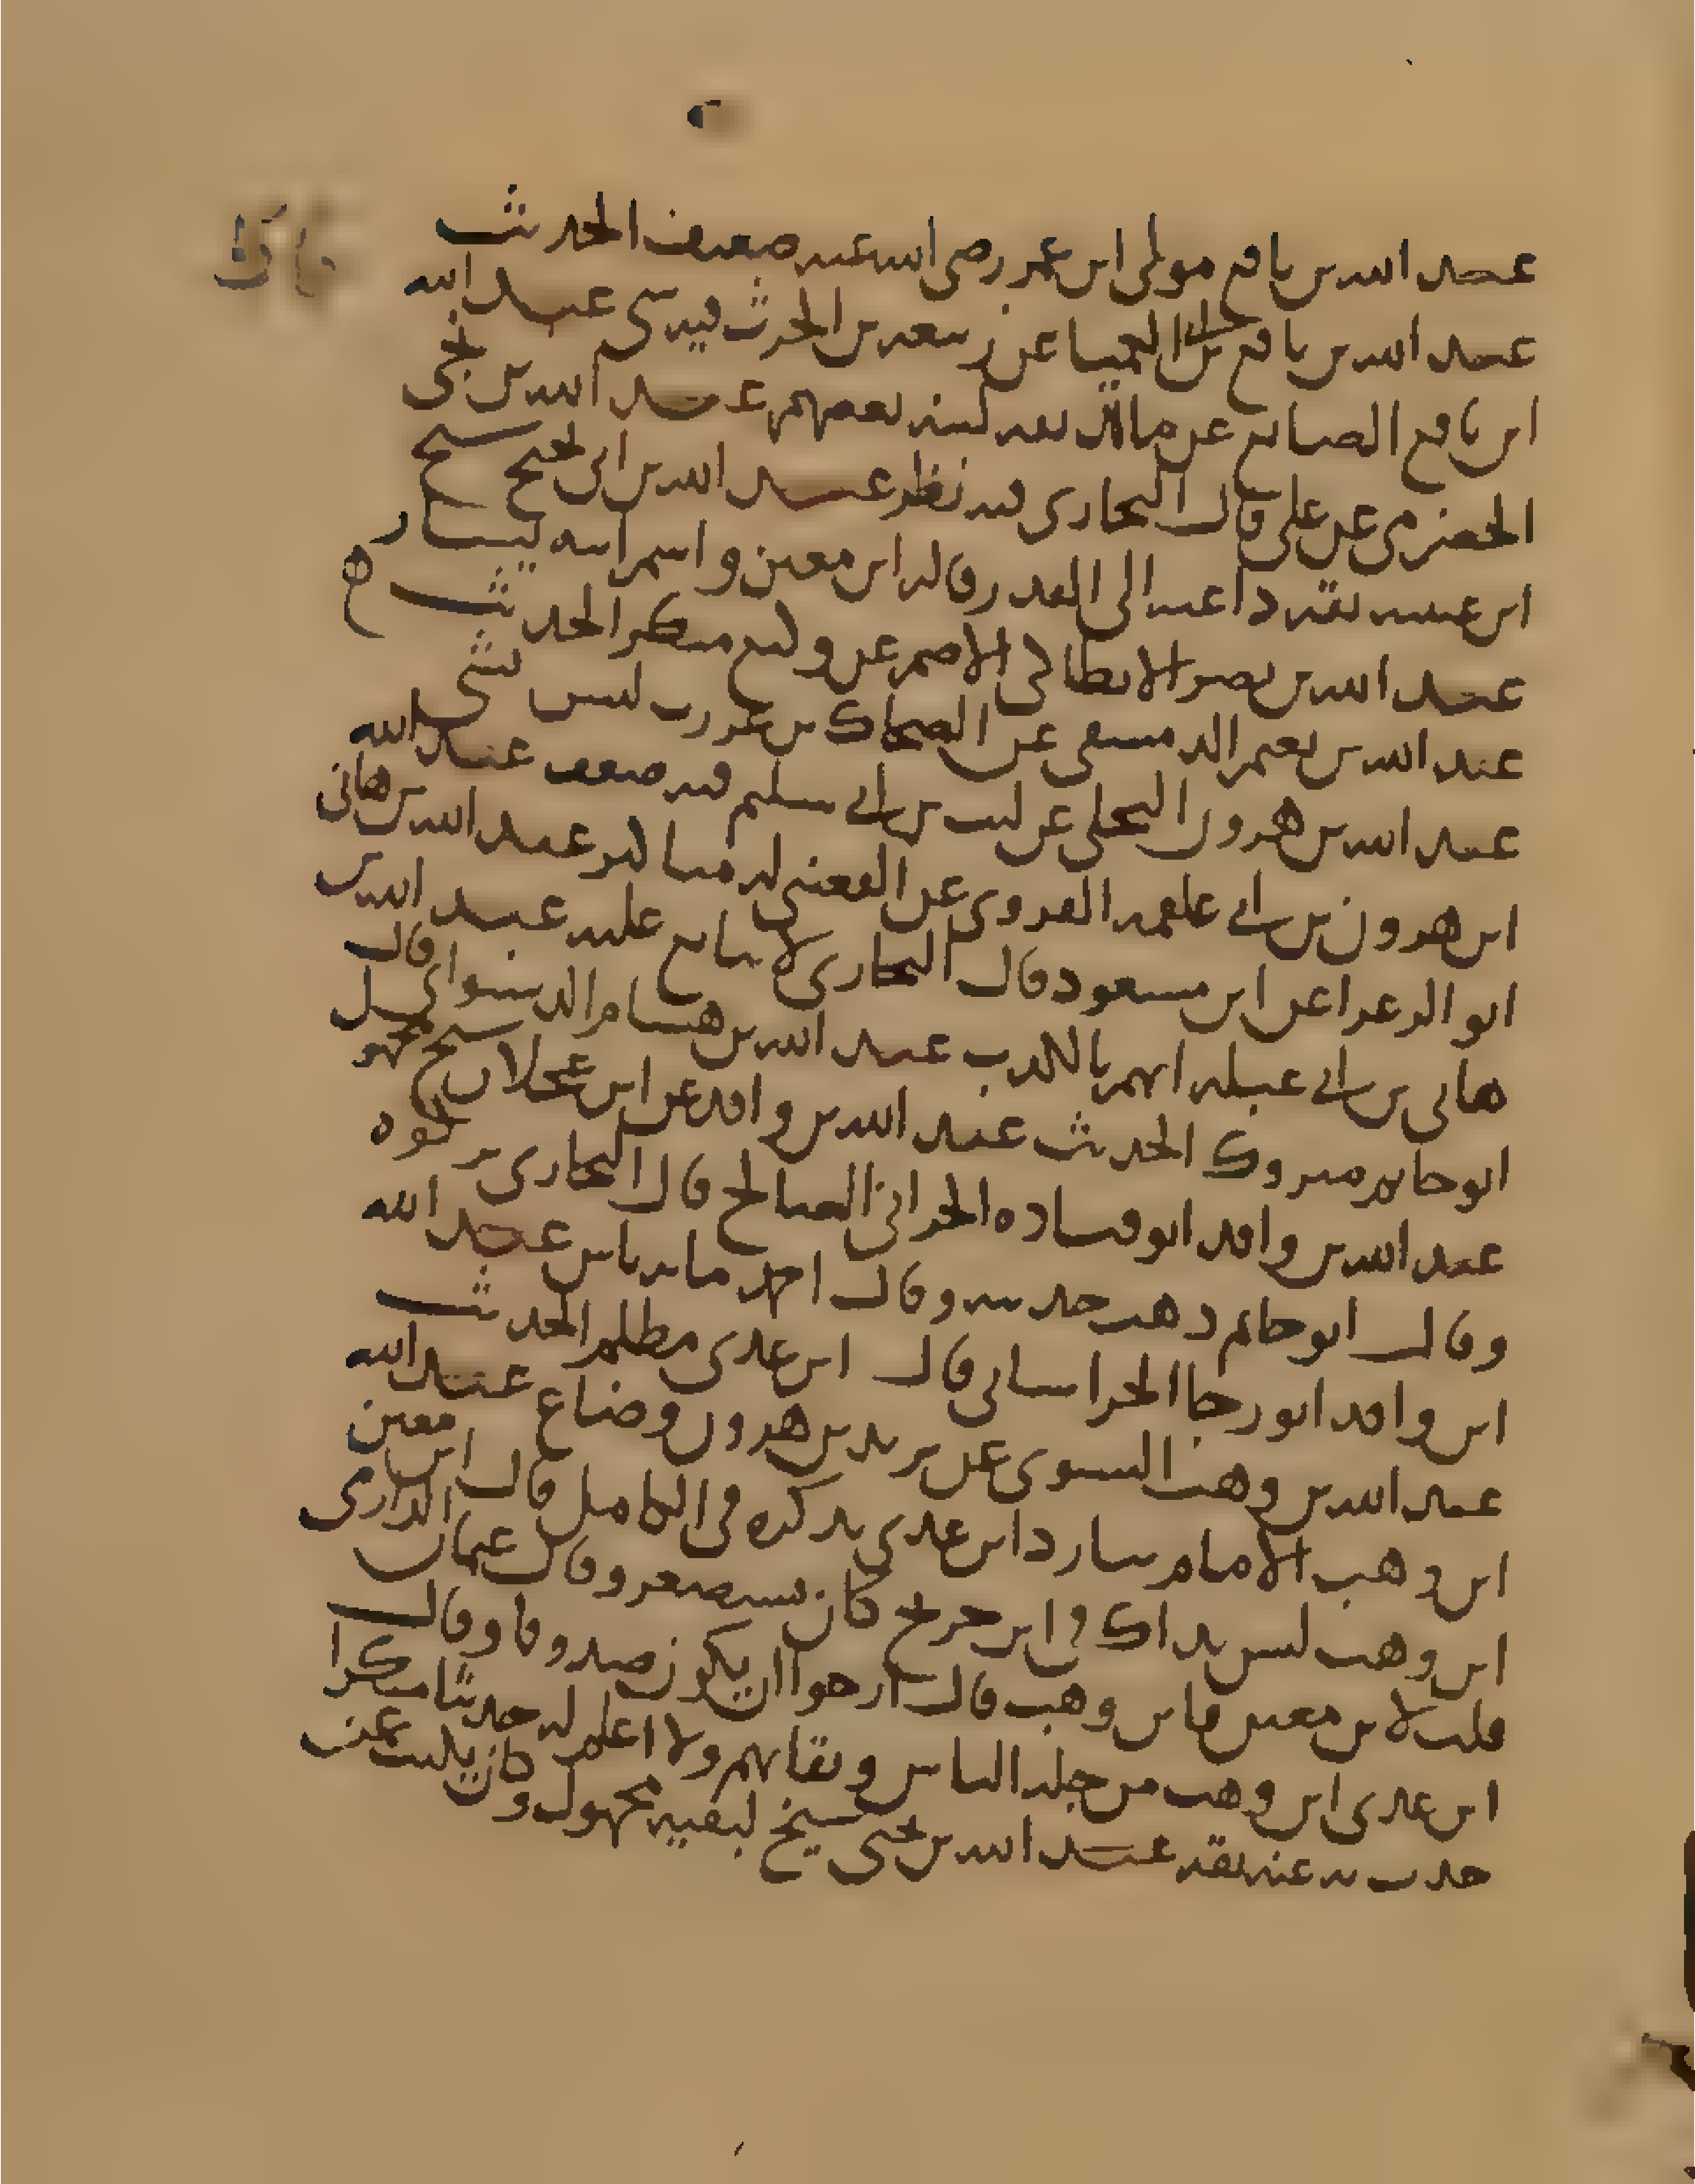 عبد الله بن نافع مولى ابن عمر رضي الله عنه ضعيف الحديث
عبد الله بن نافع بن العميا عن ربيعه بن الحرث فيه شي عبد الله
ابن نافع الصايغ عن مالك ثقه لينه بعضهم عبد الله بن نجى
الحضرمي عن علي قال البخاري فيه نظر عبد الله بن ابي نجيح شيخ
ابن عيينه ثقه داعيه الى القدر قاله ابن معين واسم ابيه يسار
عبد الله بن نصر الانطاكي الاصم عن وكيع منكر الحديث
عبد الله بن نعيم الدمشقي عن الضحاك بن عرزب ليس بشي
عبد الله بن هرون البجلي عن ليث بن ابي سليم فيه ضعف عبد الله
ابن هرون بن ابي علقمه الفروي عن القعنبي له مناكير عبد الله بن هاني
ابو الزعرا عن ابن مسعود قال البخاري لا يتابع عليه عبد الله بن
هاني بن ابي عبله اتهم بالكذب عبد الله بن هشام الدستواي قال
ابو حاتم متروك الحديث عبد الله بن واقد عن ابن عجلان شيخ مجهول
عبد الله بن واقد ابو قتاده الحراني الصالح قال البخاري تركوه
وقال ابو حاتم ذهب حديثه وقال احمد ما به باس عبد الله
ابن واقد ابو رجا الخراساني قال ابن عدي مظلم الحديث
عبد الله بن وهب النسوي عن يزيد بن هرون وضاع عبد الله
ابن وهب الامام تنارد ابن عدي بذكره في الكامل قال ابن معين
ابن وهب ليس بذاك في ابن جريج كان يستصغر وقال عثمان الدارمي
قلت لابن معين فابن وهب قال ارجوا ان يكون صدوقا وقال
ابن عدي ابن وهب من جله الناس وثقاتهم ولا اعلم له حديثا منكرا
حدث به عنه ثقه عبد الله بن يحيى شيخ لبقيه مجهول وكان يليث عنى